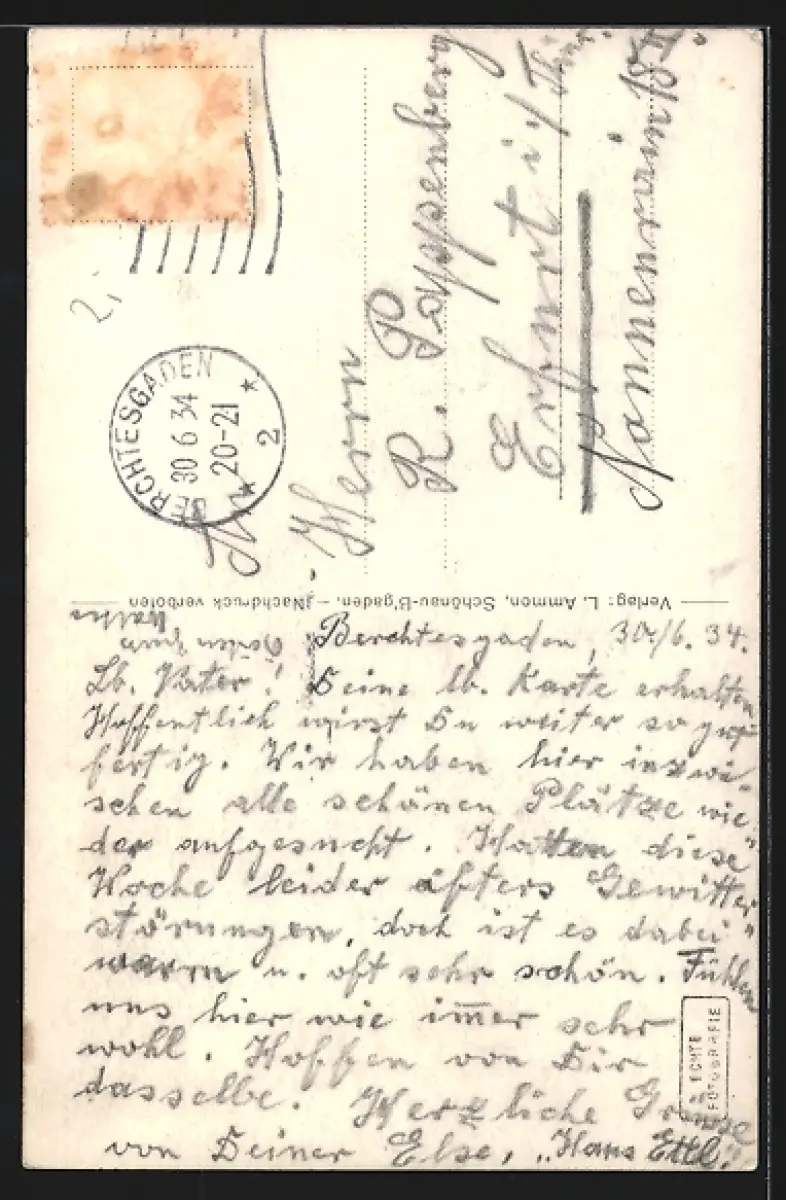 2,
BERCHTESGADEN
30 6 34
20-21
2
An
Herrn
R. Pappenberg
Erfurt i/Thür.
Nonnenrain 18 II
Verlag: L. Ammon, Schönau-B'gaden. – Nachdruck verboten
Berchtesgaden, 30./6. 34.
Lb. Vater! Deine lb. Karte erhalten
Hoffentlich wirst Du weiter so gut
fertig. Wir haben hier inzwi-
schen alle schönen Plätze wie-
der aufgesucht. Hatten diese
Woche leider öfters Gewitter
störungen, doch ist es dabei
warm u. oft sehr schön. Fühlen
uns hier wie im̅er sehr
wohl. Hoffen von Dir
dasselbe. Herzliche Grüsse
von Deiner Else, "Hans Ettl."
ECHTE
FOTOGRAFIE